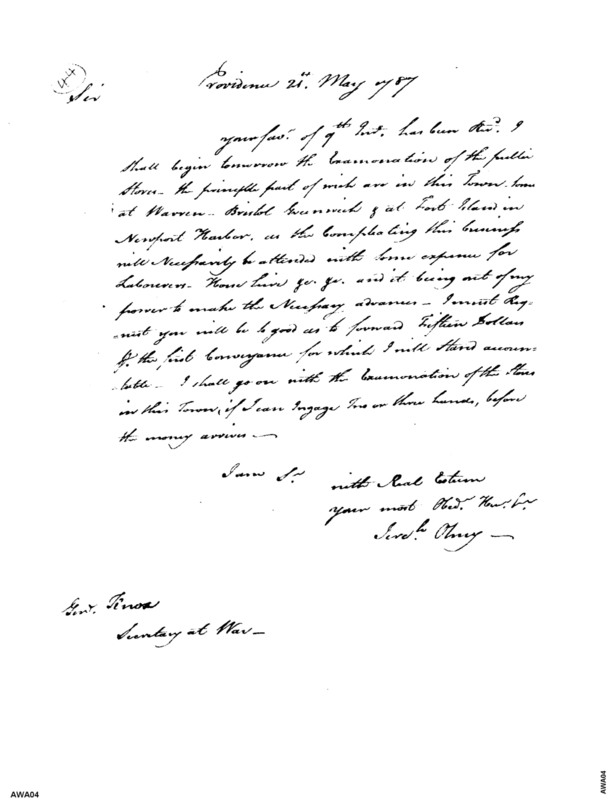 (44)
Providence 21st. May 1787
Sir
your favr. of 9th Inst. has been Recd. I
shall begin tomorrow the Examonation of the public
Stores - the principle part of wich are in this Town some
at Warren - Bristol Greenwich & at Fort Island in
Newport Harbor, as the Compleating this business
will Necessarily be attended with some expense for
Labourers - House hire &c. &c. and it being out of my
power to make the Necessary advances - I must Req-
uest you will be so good as to forward Fifteen Dollars
by the first Conveyance for which I will Stand accoun-
table - I shall go on with the Examonation of the Stores
in this Town, if I can Ingage Two or three hands, before
the money arrives -
I am Sr
with Real Esteem
your most Obedt. Hue. Sr.
Jerh. Olney -
Genl. Knox
Secretary at War -
AWA04
AWA04